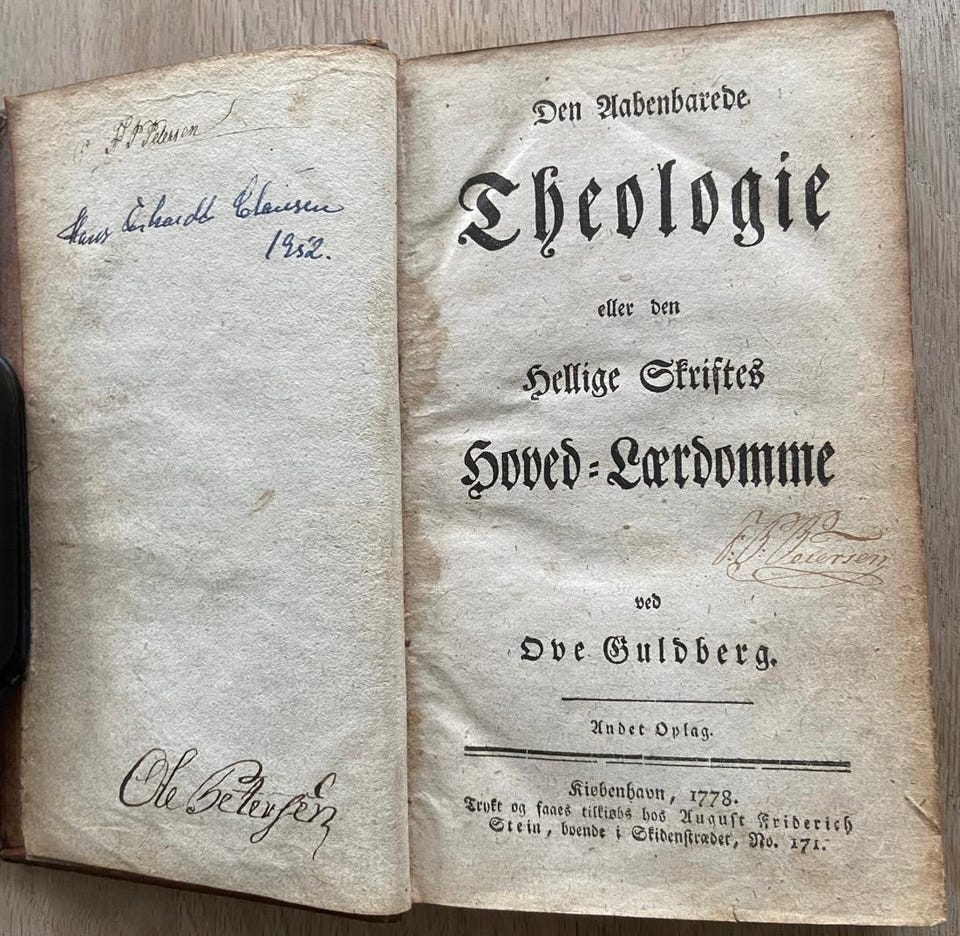 Petersen
Hans Erhardt Clausen
1952.
Ole Petersen
Den Aabenbarede
Theologie
eller den
Hellige Skriftes
Hoved-Lærdomme
Petersen
ved
Ove Guldberg.
Andet Oplag.
Kiøbenhavn, 1778.
Trykt og faaes tilkiøbs hos August Friderich
Stein, boende i Skidenstrædet, No. 171.